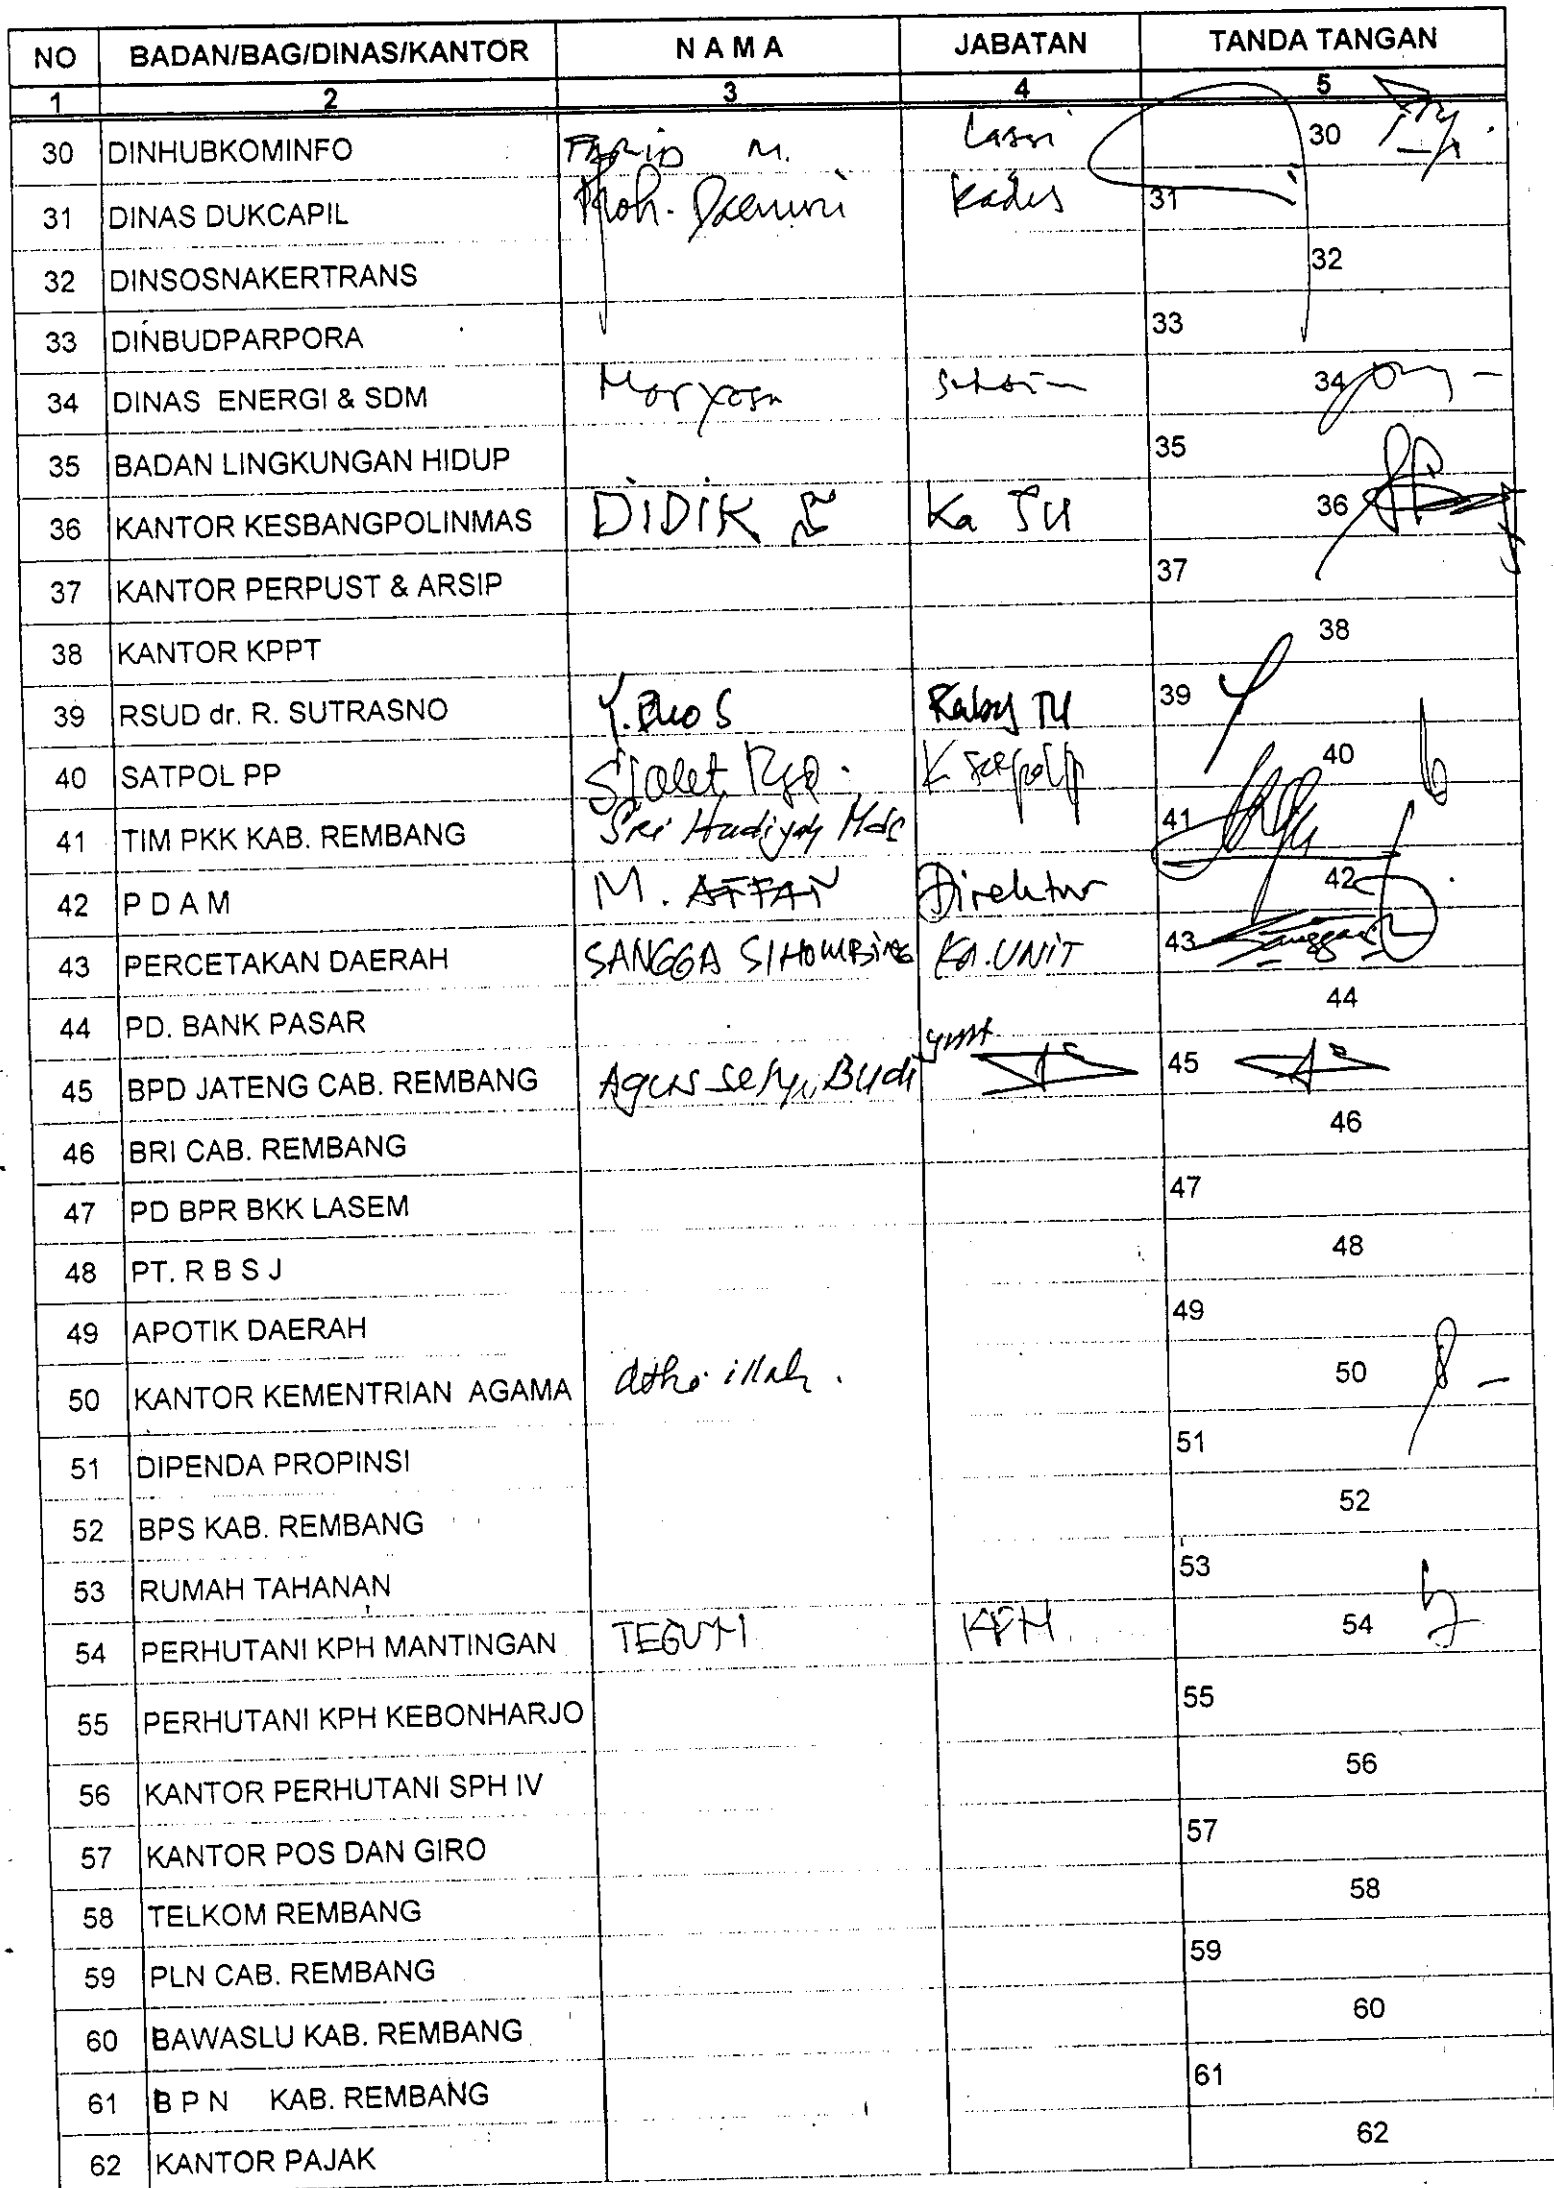 NO BADAN/BAG/DINAS/KANTOR N A M A JABATAN TANDA TANGAN
1 2 3 4 5
30 DINHUBKOMINFO FARID M. 30
31 DINAS DUKCAPIL Moh. Kadis 31
32 DINSOSNAKERTRANS 32
33 DINBUDPARPORA 33
34 DINAS ENERGI & SDM 34
35 BADAN LINGKUNGAN HIDUP 35
36 KANTOR KESBANGPOLINMAS DIDIK Ka TU 36
37 KANTOR PERPUST & ARSIP 37
38 KANTOR KPPT 38
39 RSUD dr. R. SUTRASNO TU 39
40 SATPOL PP 40
41 TIM PKK KAB. REMBANG Sri Hadiyah 41
42 P D A M M. AFFAN Direktur 42
43 PERCETAKAN DAERAH SANGGA SIHOMBING KA.UNIT 43
44 PD. BANK PASAR 44
45 BPD JATENG CAB. REMBANG Agus Budi 45
46 BRI CAB. REMBANG 46
47 PD BPR BKK LASEM 47
48 PT. R B S J 48
49 APOTIK DAERAH 49
50 KANTOR KEMENTRIAN AGAMA 50
51 DIPENDA PROPINSI 51
52 BPS KAB. REMBANG 52
53 RUMAH TAHANAN 53
54 PERHUTANI KPH MANTINGAN TEGUH KPH. 54
55 PERHUTANI KPH KEBONHARJO 55
56 KANTOR PERHUTANI SPH IV 56
57 KANTOR POS DAN GIRO 57
58 TELKOM REMBANG 58
59 PLN CAB. REMBANG 59
60 BAWASLU KAB. REMBANG 60
61 B P N KAB. REMBANG 61
62 KANTOR PAJAK 62